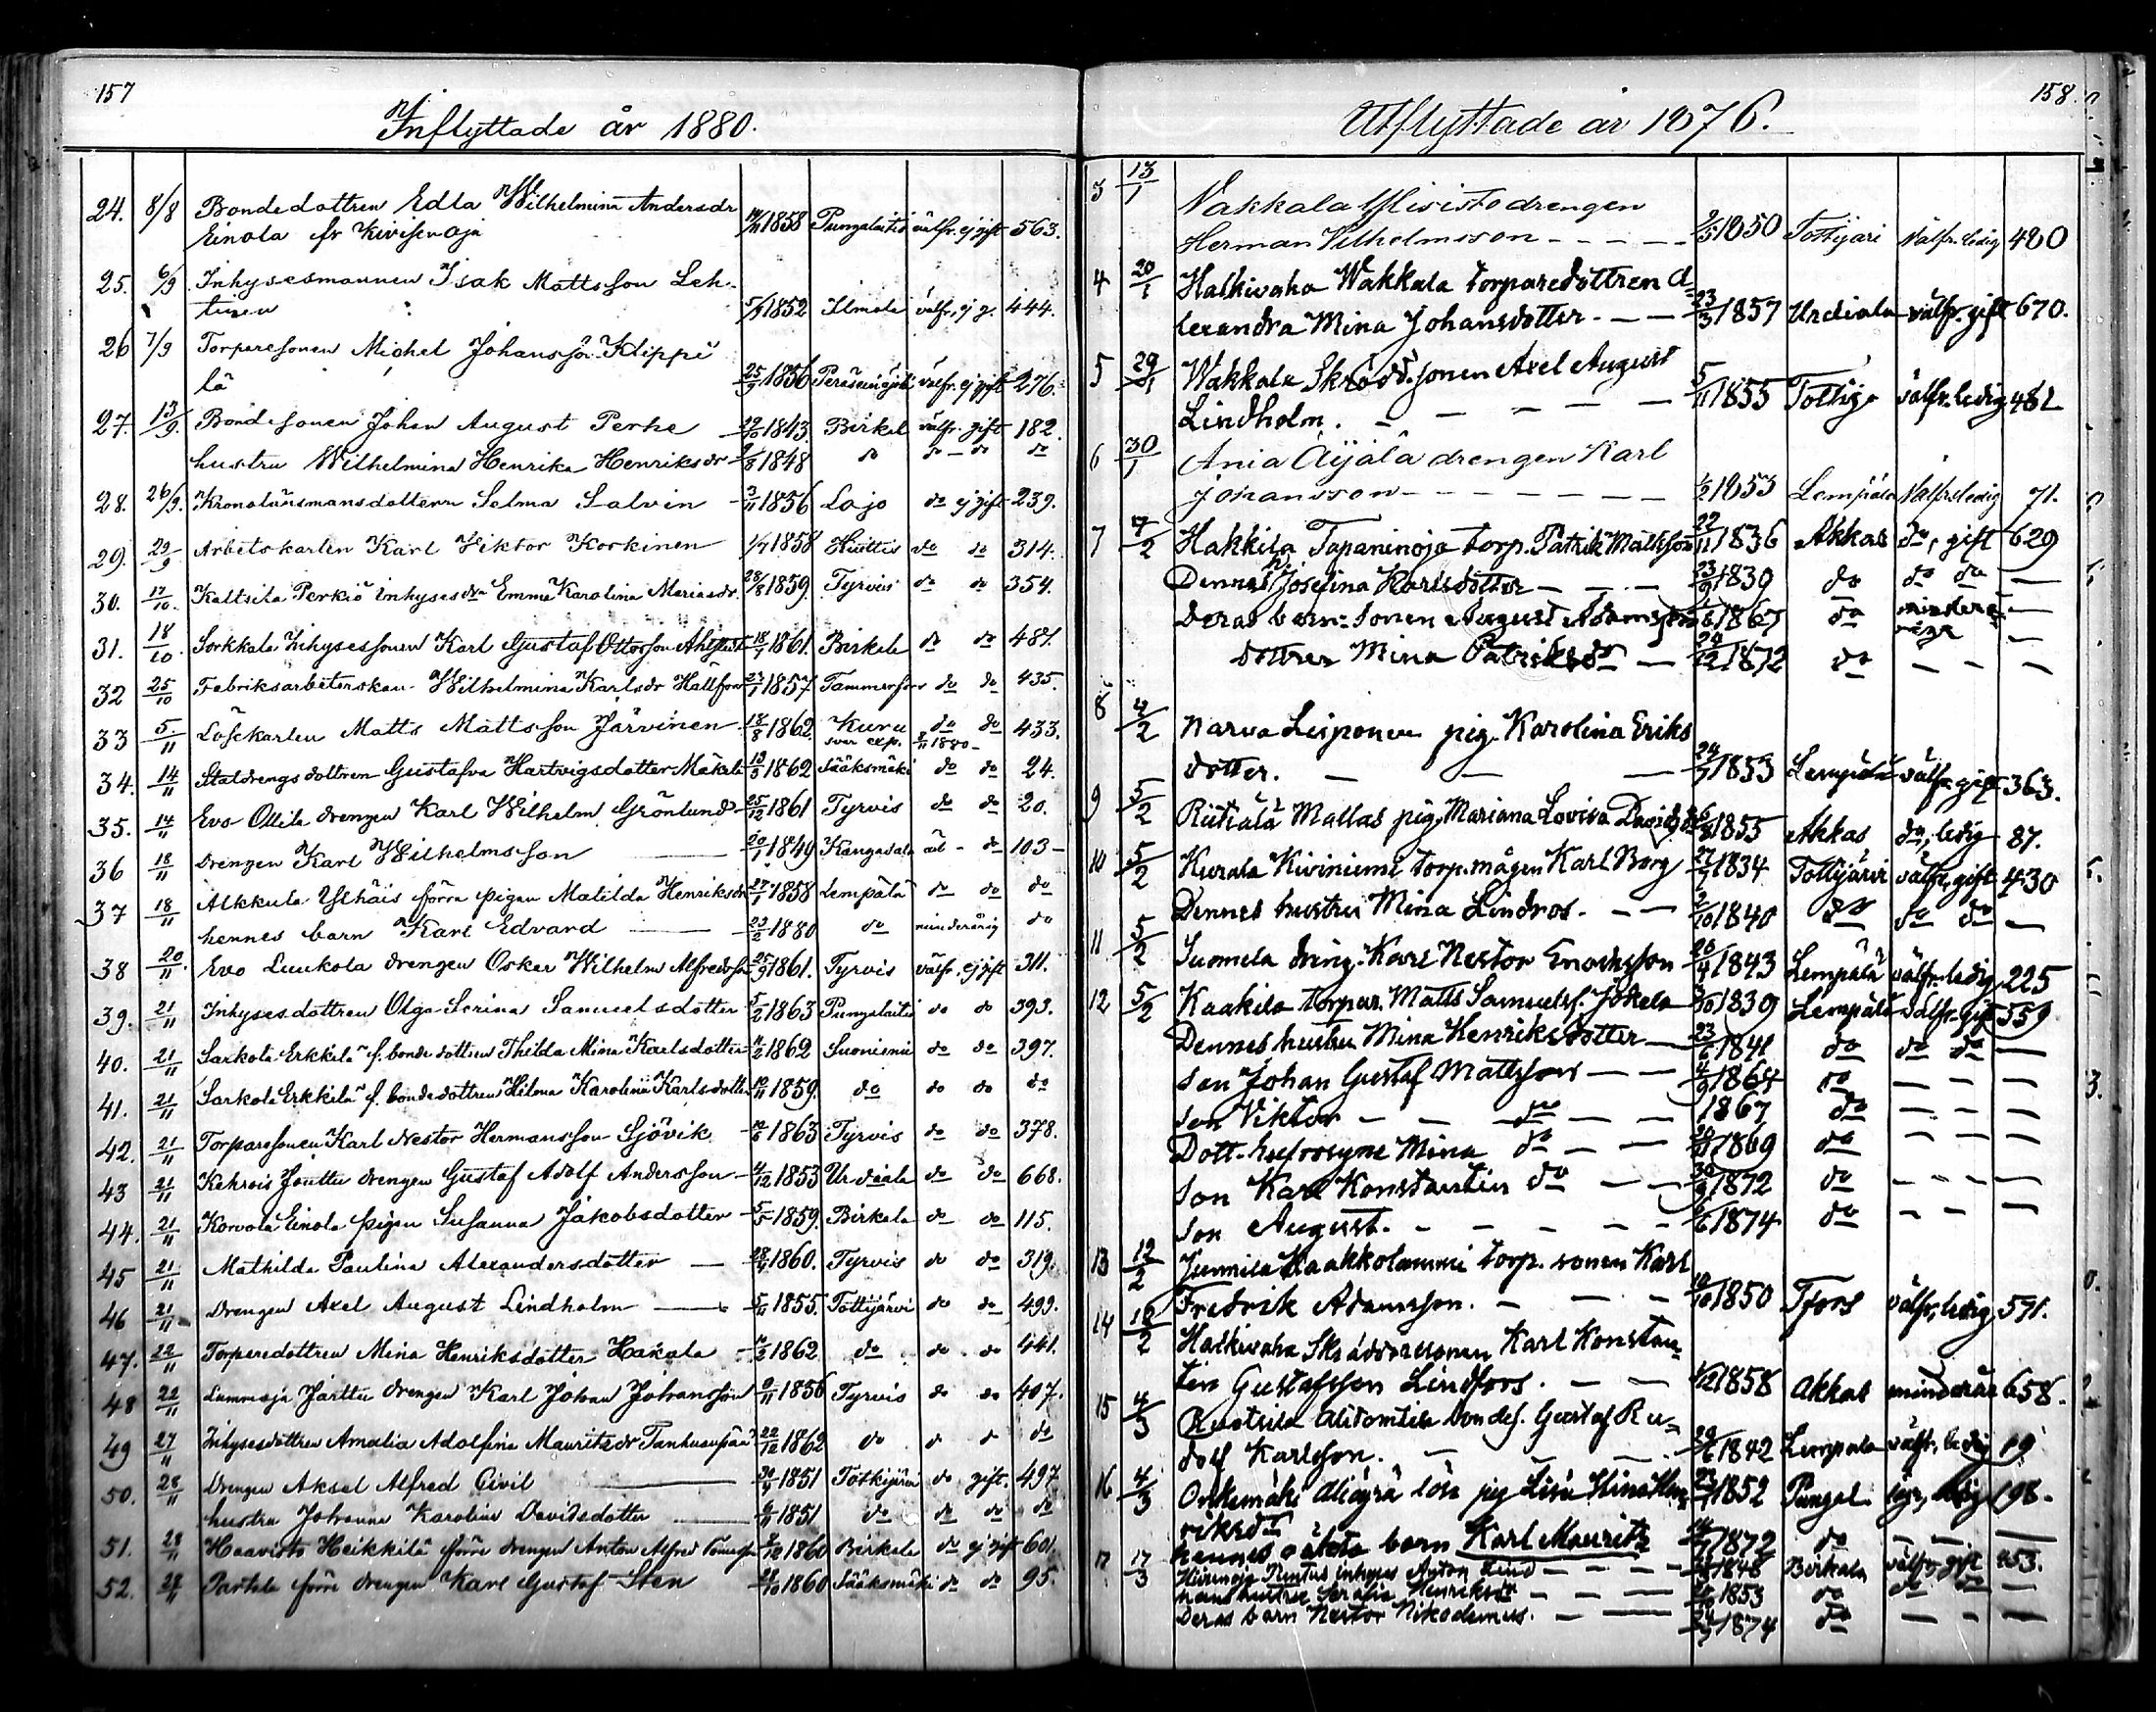 157
Inflyttade år 1880.
24. 8/8 Bondedottren Edla Wilhelmina Andersdr
Einola fr Kivisenoja 1858 Pungalaitio välfr. ej gift 563.
25. 6/9 Inhysesmannen Isak Mattsson Leh-
tinen 1852 Ilmola välfr. ej g. 444.
26 7/9 Torparesonen Michel Johansson Klippi
lä 25/9 1856 Peräseinäjoki välfr. ej gift 276.
27. 13/9. Bondesonen Johan August Perhe 29/10 1843. Birkal välfr. gift 182.
hustru Wilhelmina Henrika Henriksdr 1848 do do - do do
28. 26/9. Kronolänsmansdottern Selma Salvin - 3/11 1856 Lojo do ej gift 239.
29. 29/9 Arbetskarlen Karl Viktor Korkinen 1/7 1858 Huittis do do 314.
30. 17/10. Kaltsila Perkiö inhysesdr Emma Karolina Mariasdr. 28/8 1859. Tyrvis do do 354.
31. 18/10 Sorkkala Inhysessonen Karl Gustaf Ottosson Ahlqvist 18/7 1861. Birkala do do 481.
32 25/10 Fabriksarbeterskan Wilhelmina Karlsdr Hällfors 23/1 1857 Tammerfors do do 435.
33 5/11 Löskarlen Matts Mattsson Järvinen 18/8 1862 Kuru do do 433.
1880 -
34. 14/11 Staldrengsdottren Gustafva Hartvigsdotter Mäkelä 13/5 1862 Sääksmäki do do 24.
35. 14/11 Evo Ollila drengen Karl Wilhelm Grönlund 25/12 1861 Tyrvis do do 20.
36 18/11 Drengen Karl Wilhelmsson 20/1 1849 Kangasala do 103 -
37 18/11 Alkkula Ylhäis förra pigan Matilda Henriksdr 27/1 1858 Lempälä do do do
hennes barn Karl Edvard 23/2 1880 do minderårig do
38 20/11 Evo Luukola drengen Oskar Wilhelm Alfredsson 25/9 1861. Tyrvis välfr. ej gift 311.
39. 21/11 Inhysesdottren Olga Serina Samuelsdotter 5/2 1863 Pungalaitio do do 393.
40. 21/11 Sarkola Erkkilä f. bondedottren Thilda Mina Karlsdotter 1862 Suoniemi do do 397.
41. 21/11 Sarkola Erkkilä f. bondedottren Hilma Karolina Karlsdotter 1859. do do do do
42. 21/11 Torparesonen Karl Nestor Hermansson Sjövik 1863 Tyrvis do do 378.
43 21/11 Kehrois Jouttu drengen Gustaf Adolf Andersson 4/12 1853 Urdiala do do 668.
44. 21/11 Korvola Einola pigan Susanna Jakobsdotter 5/5 1859. Birkala do do 115.
45 21/11 Mathilda Paulina Alexandersdotter 1860. Tyrvis do do 319.
46 21/11 Drengen Axel August Lindholm 5/11 1855. Tottijärvi do do 499.
47. 22/11 Torparedottren Mina Henriksdotter Hakala 1862. do do do 441.
48 22/11 Lammoja Järttu drengen Karl Johan Johansson 9/11 1856 Tyrvis do do 407.
49 27/11 Inhysesdottren Amalia Adolfina Mauritzdr Tanhuanpää 22/12 1862 do do do do
50. 28/11 Drengen Aksel Alfred Civil 30/9 1851 Totkijärvi do gift. 497
hustru Johanna Karolina Davidsdotter 1851 do do do do
51. 28/11 Haavisto Heikkilä förre drengen Anton Alfred 1860 Birkala do ej gift 601.
52. 28/11 Partola förre drengen Karl Gustaf Sten 28/10 1860 Sääksmäki do do 95.
158.
Utflyttade år 1876.
3 13/1 Nakkala Yliristo drengen
Herman Vilhelmsson - - - - - 2/5 1850 Tottijäri Välfr. ledig 480
4 20/1 Halkivaha Wakkala torparedottren A-
lexandra Mina Johansdotter. - - 23/3 1857 Urdiala välfr. gift 670.
5 29/1 Wakkala Skrädd. sonen Axel August
Lindholm. - - - - 5/11 1855 Tottijä välfr. ledig 481
6 30/1 Ania Äijälä drengen Karl
Johansson - - - - - - 1/2 1853 Lempäla Välfr. ledig 71.
7 4/2 Hakkila Tapaninoja torp. Patrik Mattsson 22/11 1836 Akkas do, gift 629
Dennes h. Josefina Karlsdotter - - - 23/9 1839 do do do -
Deras barn: sonen August Adamsson 1867 do minder- -
årige
dottren Mina Patriksdr - 24/12 1872 do - - -
8 4/2 Narva Lisponen pig. Karolina Eriks
dotter. - - - 24/7 1853 Lempälä välfr. gift 363.
9 5/2 Riitiala Mattas pig. Mariana Lovisa Davidsdr 1855 Akkas do, ledig 87.
10 5/2 Kurala Kiviniemi torp. mågen Karl Borg 27/7 1834 Tottijärvi välfr, gift 430
Dennes hustru Mina Lindros. - - 2/10 1840 do do do -
11 5/2 Suomela dreng. Karl Nestor Enochsson 28/7 1843 Lempälä välfr. ledig 225
12 5/2 Kaakila torpar. Matts Samuelsf. Jokela 1839 Lempälä välfr. gift 559
Dennes hustru Mina Henriksdotter - 23/6 1841 do do do -
Son Johan Gustaf Mattsson - - 4/9 1864 do - - -
Son Viktor - - do - - 1867 do - - -
Dott. Eufrosyne Mina do - - 1869 do - - -
Son Karl Konstantin do - - 30/9 1872 do - - -
Son August. - - - - - 1874 do - - -
13 12/2 Junnila Kaakkolammi torp. sonen Karl
Fredrik Adamsson. - - - 10/10 1850 Tfors välfr, ledig 571.
14 18/2 Halkivaha Skräddaresonen Karl Konstan-
tin Gustafsson Lindfors. - - 1858 Akkas minderår 658.
15 4/3 Alitomtila bondes. Gustaf Ru-
dolf Karlsson. - - - 1842 Lempäla välfr, ledig 19
16 4/3 Onkemäki Aliäyrä lösa pig Lisa Stina Hen- 23/7 1852 Pungal. ledig 198.
riksdr
hennes oäkta barn Karl Mauritz 1872 do - - -
17 17/3 Pentus inhyses Anton Lind - - - 1848 Birkala välfr, gift 453.
hans hustru Serafia Henriksdr - - 1853 do do do -
Deras barn Nestor Nikodemus. - - 1874 do - - -